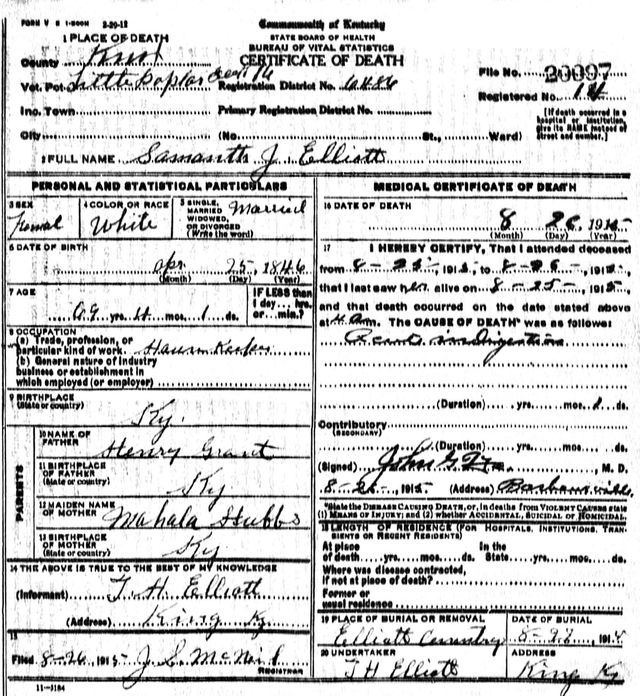 FORM V S 1-500M 2-29-12
Commonwealth of Kentucky
STATE BOARD OF HEALTH
BUREAU OF VITAL STATISTICS
CERTIFICATE OF DEATH
1 PLACE OF DEATH
County Knox
Vot. Pct. Little Poplar Creek 16
Registration District No. 6486
File No. 20097
Inc. Town
Primary Registration District No.
Registered No. 14
City (No. St., Ward)
[If death occurred in a hospital or institution, give its NAME instead of street and number.]
2 FULL NAME Samanth J. Elliott
PERSONAL AND STATISTICAL PARTICULARS
3 SEX
Femal
4 COLOR OR RACE
White
5 SINGLE, MARRIED WIDOWED, OR DIVORCED (Write the word)
Married
6 DATE OF BIRTH
Apr 25 1846
(Month) (Day) (Year)
7 AGE
69 yrs. 4 mos. 1 ds.
IF LESS than 1 day hrs. or min.?
8 OCCUPATION
(a) Trade, profession, or
particular kind of work
(b) General nature of industry
business or establishment in
which employed (or employer)
9 BIRTHPLACE
(State or country)
Ky.
PARENTS
10 NAME OF FATHER
Henry Grant
11 BIRTHPLACE OF FATHER
(State or country)
Ky
12 MAIDEN NAME OF MOTHER
Mahala Stubbs
13 BIRTHPLACE OF MOTHER
(State or country)
Ky
14 THE ABOVE IS TRUE TO THE BEST OF MY KNOWLEDGE
(Informant) T. H. Elliott
(Address) King Ky.
15
Filed 8-26 1915 J. S. McNeil
REGISTRAR
11-3184
MEDICAL CERTIFICATE OF DEATH
16 DATE OF DEATH
8 26 1915
(Month) (Day) (Year)
17 I HEREBY CERTIFY, That I attended deceased
from 8-25- 1915, to 8-26-, 1915,
that I last saw her alive on 8-25-, 1915,
and that death occurred on the date stated above
at 4 Am. The CAUSE OF DEATH* was as follows:
indigestion
(Duration) yrs. mos. 1 ds.
Contributory
(SECONDARY)
(Duration) yrs. mos. ds.
(Signed) John G. , M. D.
8-26-, 1915 (Address) Barbourville
*State the DISEASE CAUSING DEATH, or, in deaths from VIOLENT CAUSES state
(1) MEANS OF INJURY; and (2) whether ACCIDENTAL, SUICIDAL or HOMICIDAL.
18 LENGTH OF RESIDENCE (FOR HOSPITALS, INSTITUTIONS, TRANSIENTS OR RECENT RESIDENTS)
At place of death yrs. mos. ds. In the State yrs. mos. ds.
Where was disease contracted,
if not at place of death?
Former or
usual residence
19 PLACE OF BURIAL OR REMOVAL
Elliott
DATE OF BURIAL
20 UNDERTAKER
T H Elliott
ADDRESS
King Ky